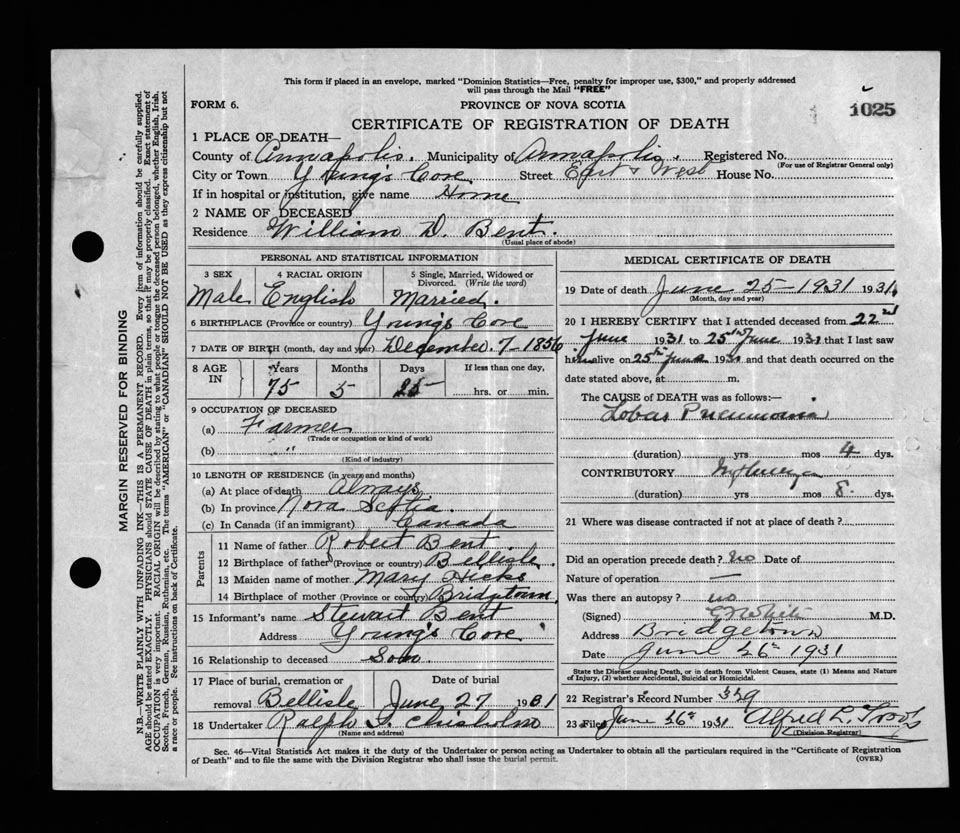 This form if placed in an envelope, marked "Dominion Statistics—Free, penalty for improper use, $300," and properly addressed
will pass through the Mail "FREE"
FORM 6.
PROVINCE OF NOVA SCOTIA
1025
CERTIFICATE OF REGISTRATION OF DEATH
1 PLACE OF DEATH—
County of Annapolis. Municipality of Annapolis. Registered No.
(For use of Registrar General only)
City or Town Youngs Cove Street East & West House No.
If in hospital or institution, give name Home
2 NAME OF DECEASED
Residence William D. Bent.
(Usual place of abode)
PERSONAL AND STATISTICAL INFORMATION
3 SEX 4 RACIAL ORIGIN 5 Single, Married, Widowed or Divorced. (Write the word)
Male English Married.
6 BIRTHPLACE (Province or country) Young's Cove
7 DATE OF BIRTH (month, day, and year) December. 7-1856
8 AGE IN Years Months Days If less than one day,
75 5 hrs. or min.
9 OCCUPATION OF DECEASED
(a) Farmer
(Trade or occupation or kind of work)
(b) "
(Kind of industry)
10 LENGTH OF RESIDENCE (in years and months)
(a) At place of death Always.
(b) In province Nova Scotia.
(c) In Canada (if an immigrant) Canada
Parents
11 Name of father Robert Bent
12 Birthplace of father (Province or country) Bellisle.
13 Maiden name of mother Mary Hicks
14 Birthplace of mother (Province or country) Bridgetown.
15 Informant's name Stewart Bent
Address Young's Cove
16 Relationship to deceased Son.
17 Place of burial, cremation or Date of burial
removal Bellisle June 27 1931
18 Undertaker Ralph Chisholm
(Name and address)
MEDICAL CERTIFICATE OF DEATH
19 Date of death June 25-1931 1931
(Month, day and year)
20 I HEREBY CERTIFY that I attended deceased from 22nd
June 1931 to 25th June 1931 that I last saw
him alive on 25th June 1931 and that death occurred on the
date stated above, at m.
The CAUSE of DEATH was as follows:—
Lobar Pneumonia
(duration) yrs mos 4 dys.
CONTRIBUTORY Influenza
(duration) yrs mos 8 dys.
21 Where was disease contracted if not at place of death?
Did an operation precede death? no Date of
Nature of operation —
Was there an autopsy? no
(Signed) White M.D.
Address Bridgetown
Date June 26th 1931
State the Disease causing Death, or in death from Violent Causes, state (1) Means and Nature
of Injury, (2) whether Accidental, Suicidal or Homicidal.
22 Registrar's Record Number 329
23 Filed June 26th 1931 Alfred L.
(Division Registrar)
Sec. 46—Vital Statistics Act makes it the duty of the Undertaker or person acting as Undertaker to obtain all the particulars required in the "Certificate of Registration
of Death" and to file the same with the Division Registrar who shall issue the burial permit.
(OVER)
MARGIN RESERVED FOR BINDING
N.B.—WRITE PLAINLY WITH UNFADING INK—THIS IS A PERMANENT RECORD. Every item of information should be carefully supplied.
AGE should be stated EXACTLY. PHYSICIANS should STATE CAUSE OF DEATH in plain terms, so that it may be properly classified. Exact statement of
OCCUPATION is very important. RACIAL ORIGIN will be described by stating to what people or tongue the deceased person belonged, whether English, Irish,
Scotch, French, German, Russian, Ruthenian, etc. The terms "AMERICAN" or "CANADIAN" SHOULD NOT BE USED as they express citizenship but not
a race or people. See instructions on back of Certificate.